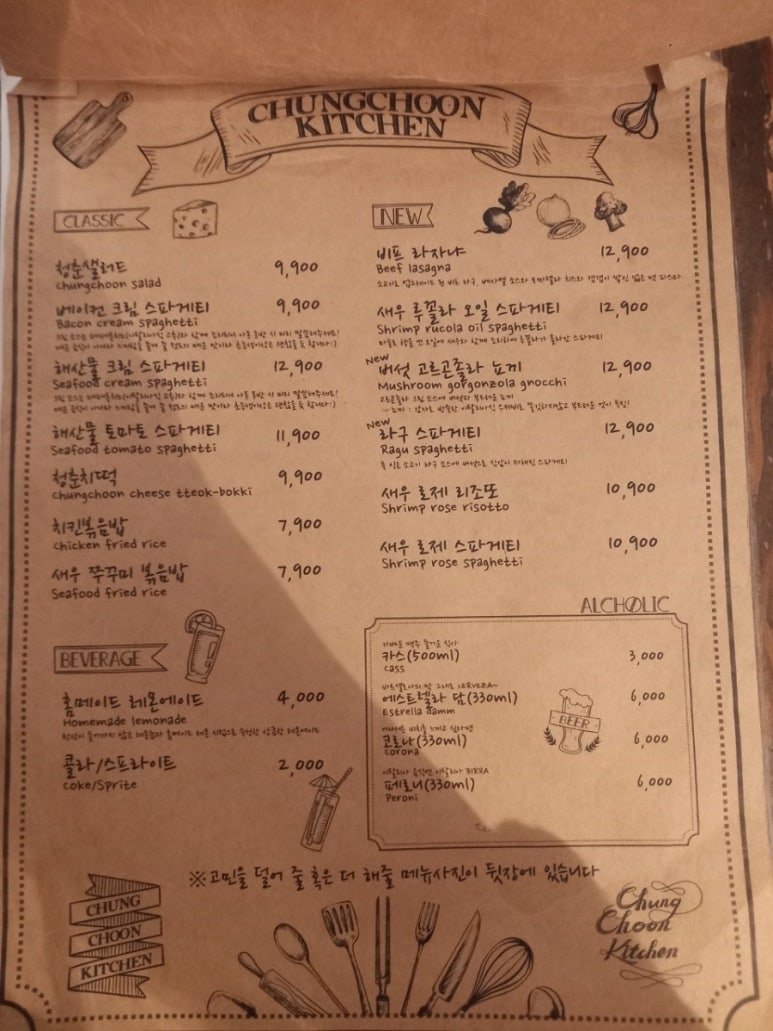 CHUNGCHOON
KITCHEN
CLASSIC
청춘샐러드 9,900
Chungchoon salad
베이컨 크림 스파게티 9,900
Bacon cream spaghetti
해산물 크림 스파게티 12,900
Seafood cream spaghetti
해산물 토마토 스파게티 11,900
Seafood tomato spaghetti
청춘치떡 9,900
Chungchoon cheese tteok-bokki
치킨볶음밥 7,900
Chicken fried rice
새우 쭈꾸미 볶음밥 7,900
Seafood fried rice
BEVERAGE
홈메이드 레몬에이드 4,000
Homemade lemonade
콜라/스프라이트 2,000
Coke/Sprite
NEW
비프 라자냐 12,900
Beef lasagna
새우 루꼴라 오일 스파게티 12,900
Shrimp rucola oil spaghetti
New
버섯 고르곤졸라 뇨끼 12,900
Mushroom gorgonzola gnocchi
고르곤졸라 크림 소스에 버섯과 부드러운 뇨끼
New
라구 스파게티 12,900
Ragu spaghetti
새우 로제 리조또 10,900
Shrimp rose risotto
새우 로제 스파게티 10,900
Shrimp rose spaghetti
ALCHOLIC
카스(500ml) 3,000
Cass
에스트렐라 담(330ml) 6,000
Estrella damm
코로나(330ml) 6,000
Corona
페로니(330ml) 6,000
Peroni
BEER
※고민을 덜어 줄 혹은 더 해줄 메뉴사진이 뒷장에 있습니다
CHUNG
CHOON
KITCHEN
Chung
Choon
Kitchen